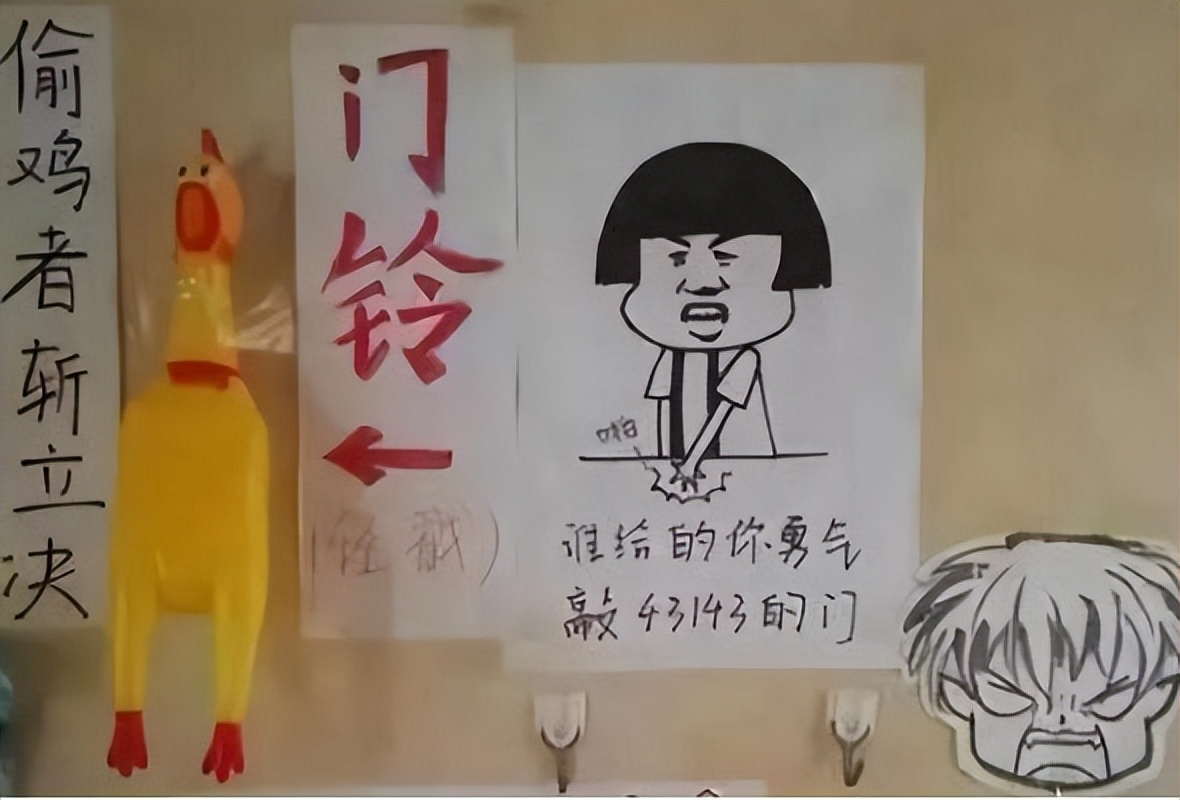 偷鸡者斩立决
门铃
啪
谁给的你勇气
敲43143的门